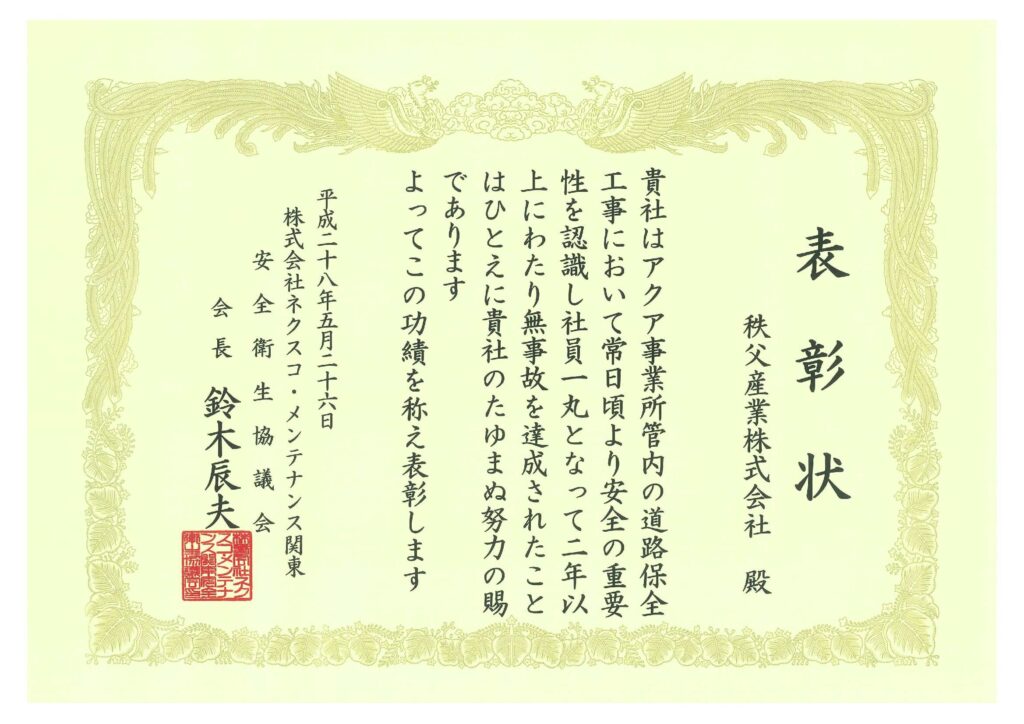 表彰状
秩父産業株式会社 殿
貴社はアクア事業所管内の道路保全
工事において常日頃より安全の重要
性を認識し社員一丸となって二年以
上にわたり無事故を達成されたこと
はひとえに貴社のたゆまぬ努力の賜
であります
よってこの功績を称え表彰します
平成二十八年五月二十六日
株式会社ネクスコ・メンテナンス関東
安全衛生協議会
会長 鈴木辰夫